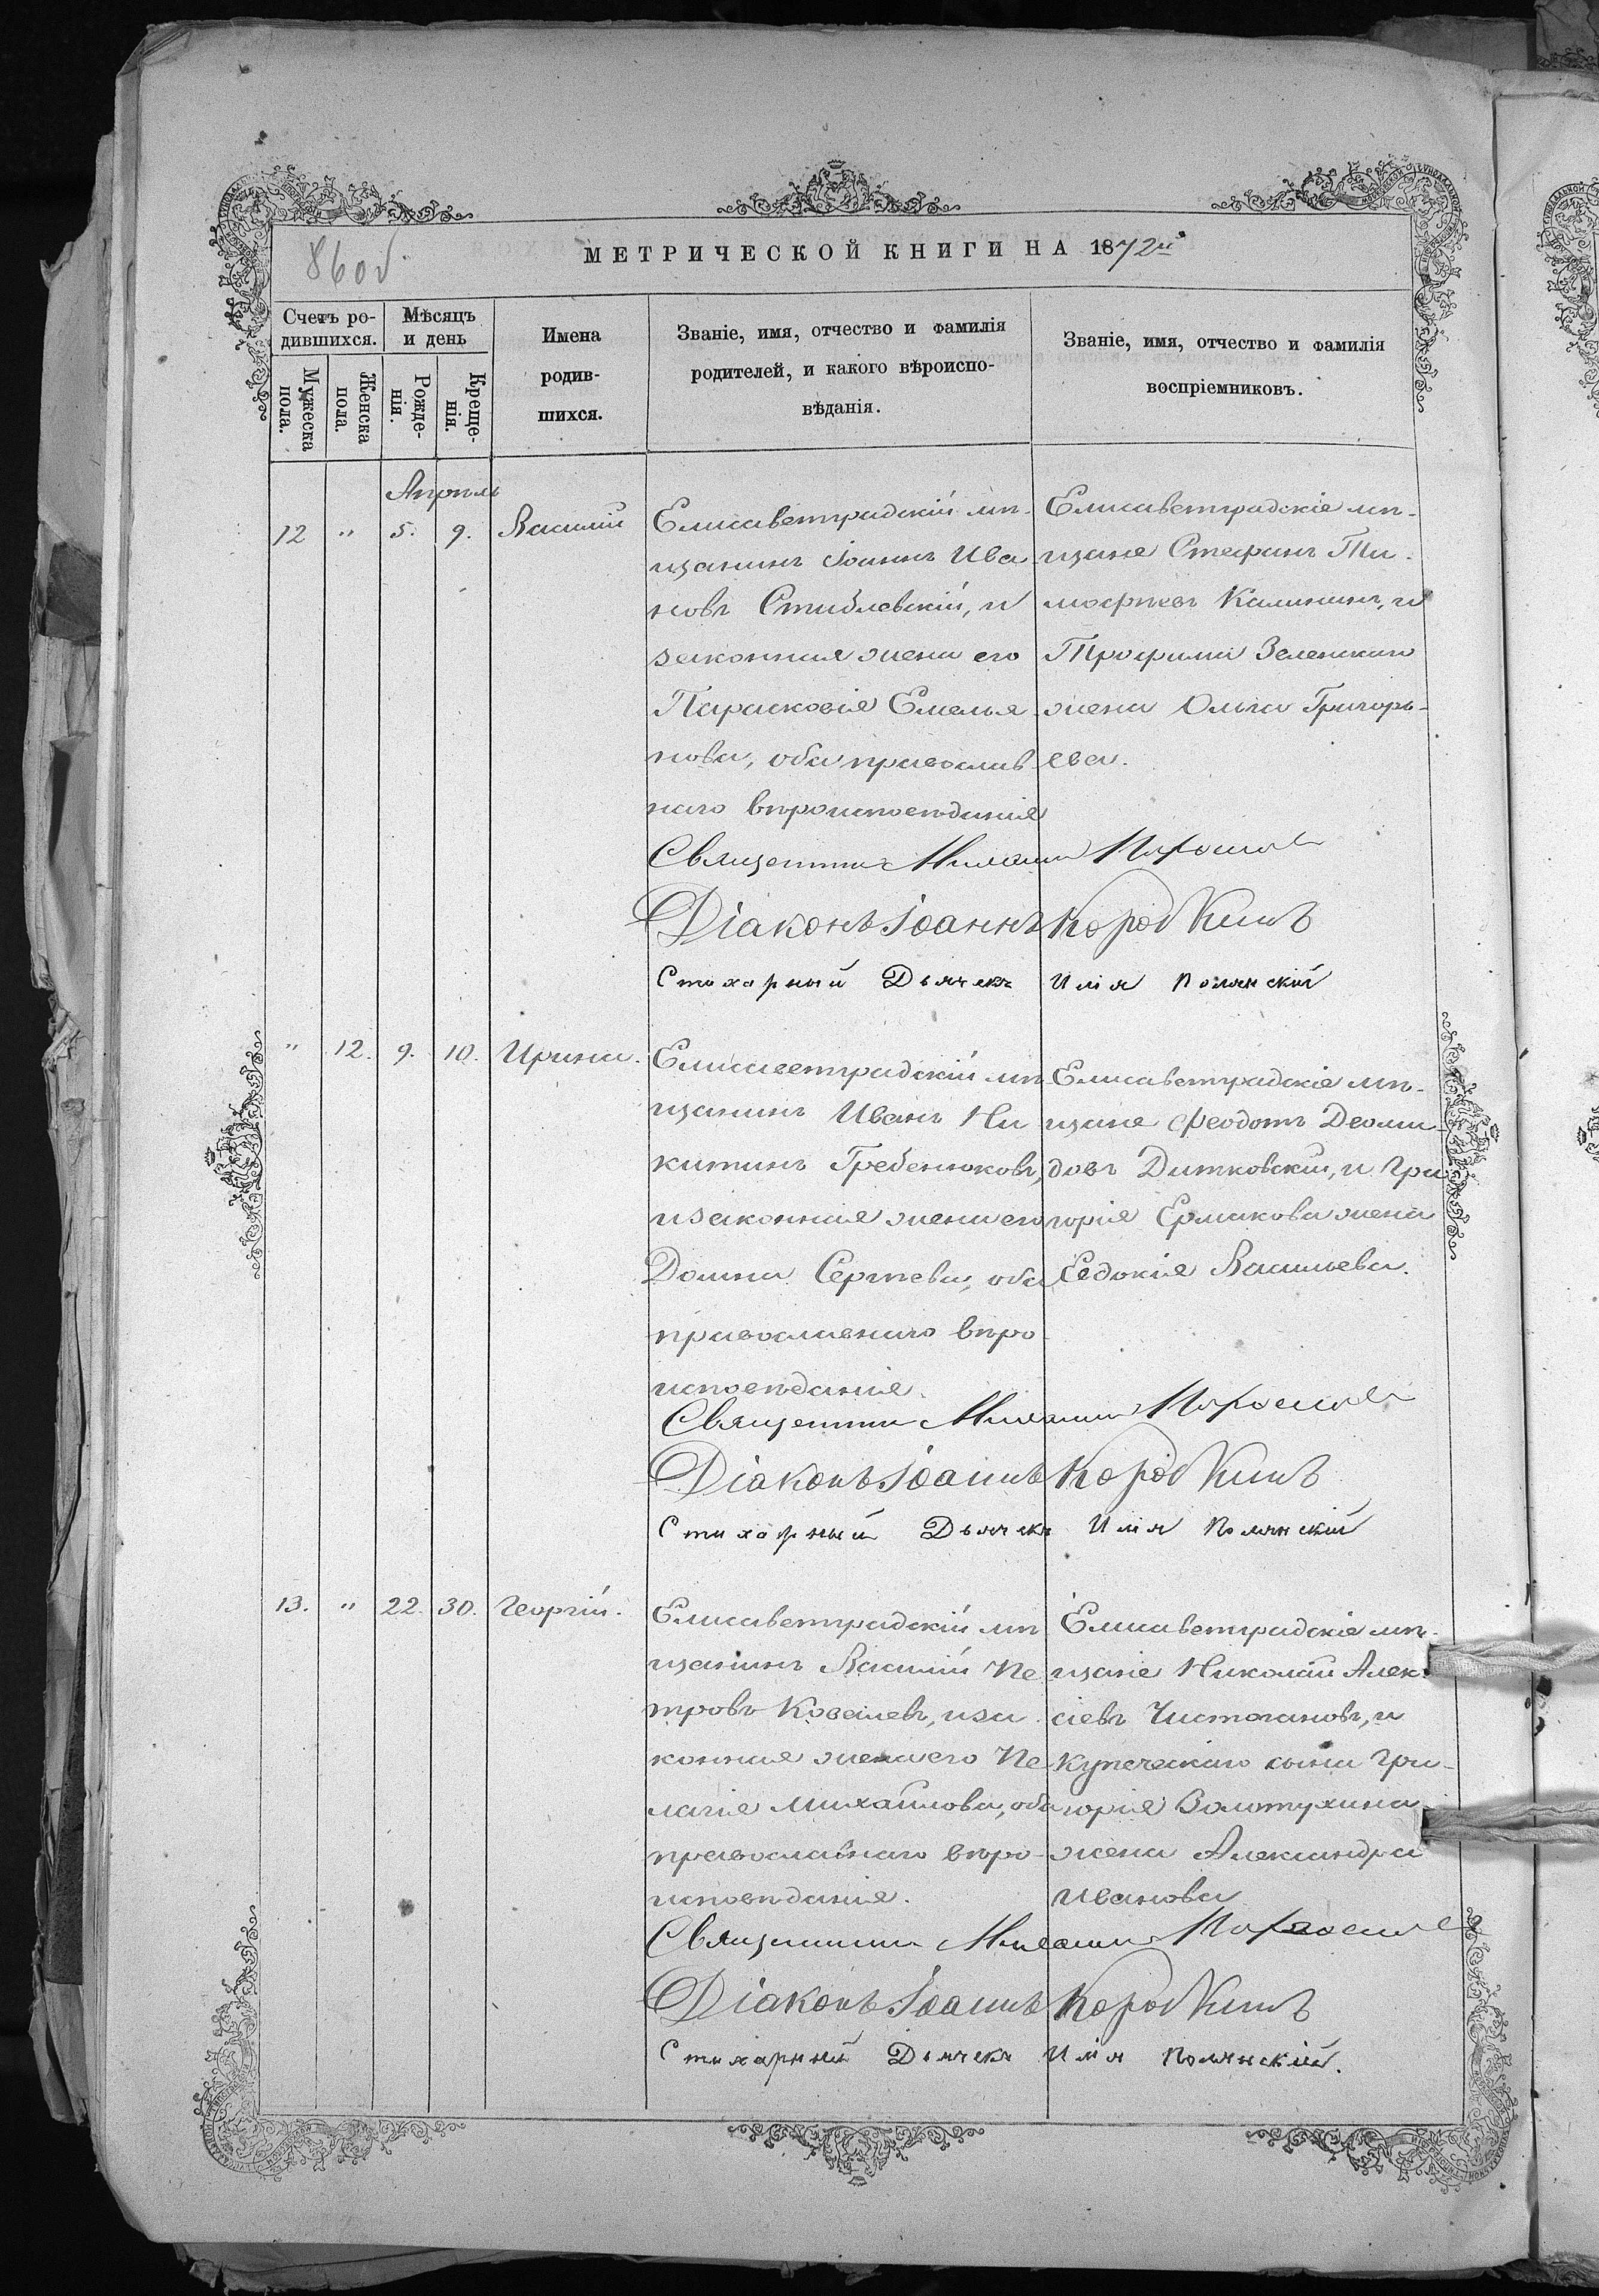 860б.
МЕТРИЧЕСКОЙ КНИГИ НА 1872й
Счетъ ро-
дившихся.
Мужеска
пола.
Женска
пола.
Мѣсяцъ
и день
Рожде-
нія.
Креще-
нія.
Имена
родив-
шихся.
Званіе, имя, отчество и фамилія
родителей, и какого вѣроиспо-
вѣданія.
Званіе, имя, отчество и фамилія
воспріемниковъ.
Апрѣль
12 " 5. 9. Василій
Елисаветградскій мѣ-
щанинъ Іоаннъ Ива
новъ Стиблевскій, и
законная жена его
Парасковія Емелья-
нова, оба православ
наго вѣроисповѣданія
Елисаветградскіе мѣ-
щане Стефанъ Ти-
мофѣевъ Калининъ, и
Трофима Зеленскаго
жена Ольга Григорь-
ева.
Священникъ
Діаконъ Іоаннъ Коробкинъ
Стихарный Дьячекъ Илія Полянскій
" 12. 9. 10. Ирина.
Елисаветградскій мѣ
щанинъ Иванъ Ни
китинъ Гребенюковъ,
и законная жена его
Домна Сергѣева, оба
православнаго вѣро-
исповѣданія.
Елисаветградскіе мѣ-
щане Феодотъ Деоми-
довъ Дитковскій, и Гри
горія Ермакова жена
Евдокія Васильева.
Священникъ
Діаконъ Іоаннъ Коробкинъ
Стихарный Дьячекъ Илія Полянскій
13. " 22. 30. Георгій.
Елисаветградскій мѣ
щанинъ Василій Пе
тровъ Ковалевъ, и за
конная жена его Пе
лагія Михайлова, оба
православнаго вѣро-
исповѣданія.
Елисаветградскіе мѣ-
щане Николай Алек-
сіевъ Чистогановъ, и
купеческаго сына Гри-
горія Волтухина
жена Александра
Иванова
Священникъ
Діаконъ Іоаннъ Коробкинъ
Стихарный Дьячекъ Илія Полянскій.